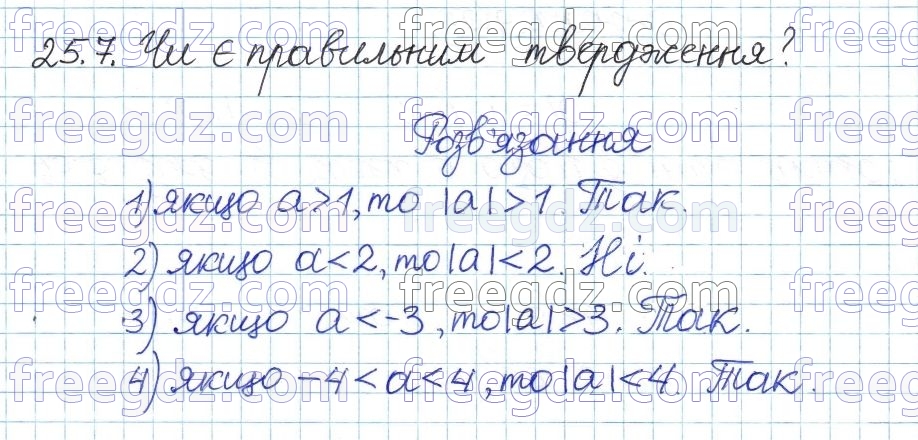 25.7. Чи є правильним твердження?
Розв'язання
1) якщо a>1, то |a|>1. Так.
2) якщо a<2, то |a|<2. Ні.
3) якщо a<-3, то |a|>3. Так.
4) якщо -4<a<4, то |a|<4. Так.
freegdz.com